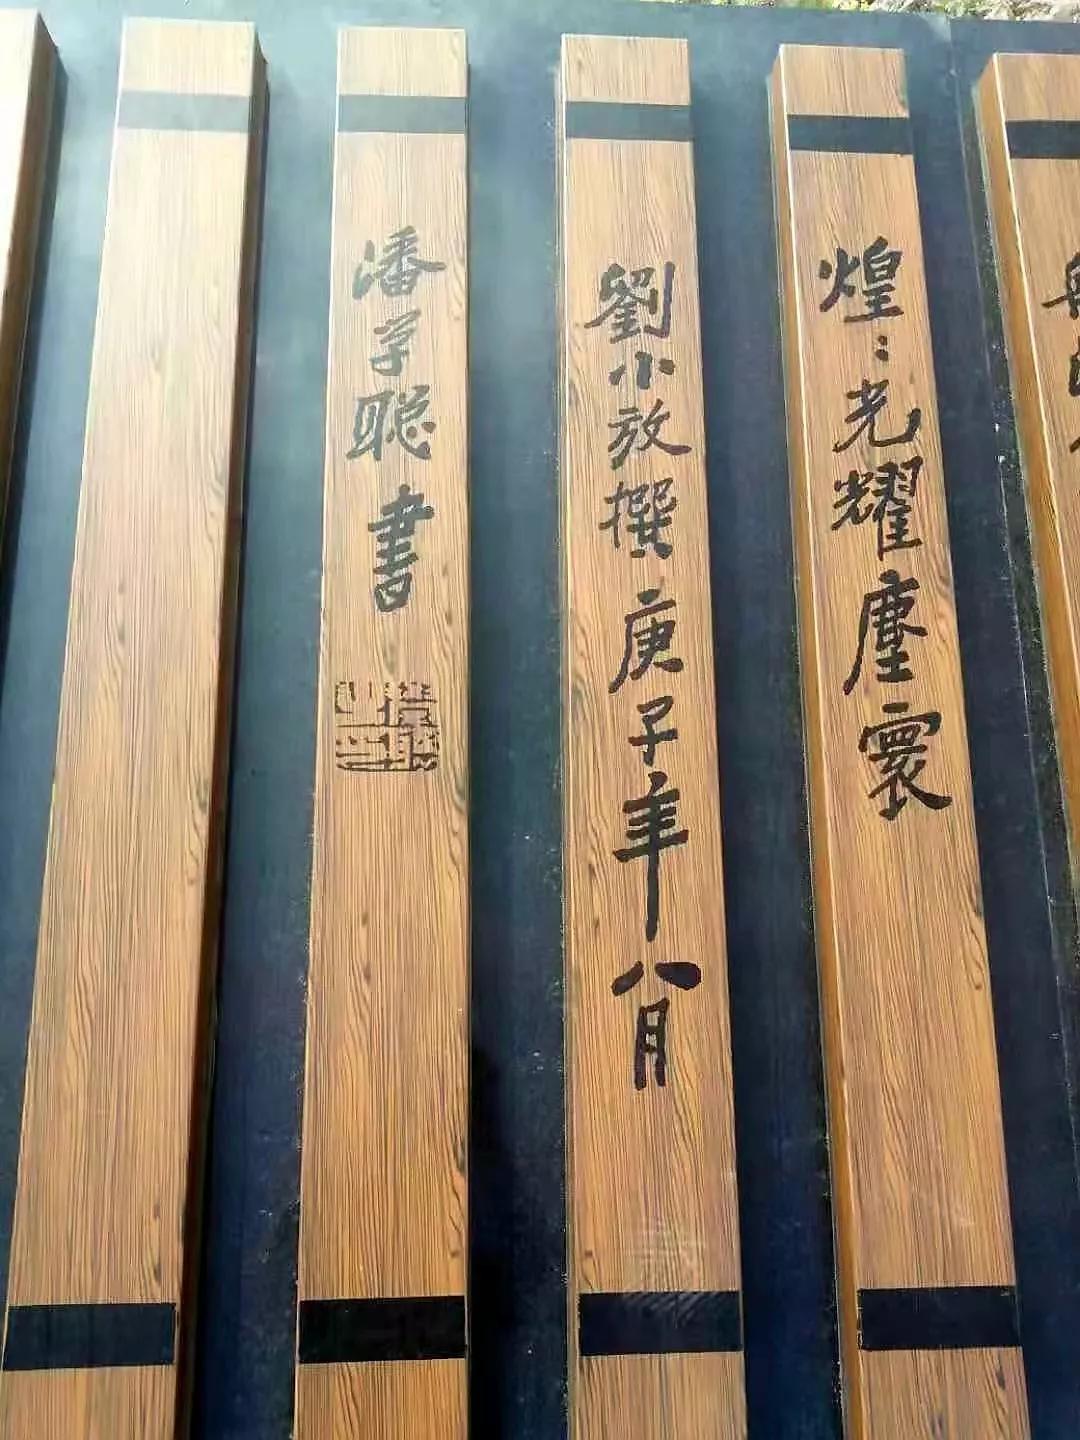 煌：光耀塵寰
劉小放撰庚子年八月
潘学聪書